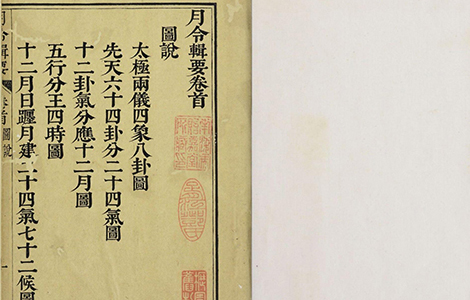 月令輯要卷首
圖說
太極兩儀四象八卦圖
先天六十四卦分二十四氣圖
十二卦氣分應十二月圖
五行分王四時圖
十二月日躔月建二十四氣七十二候圖
月令輯要
卷首
圖說
一